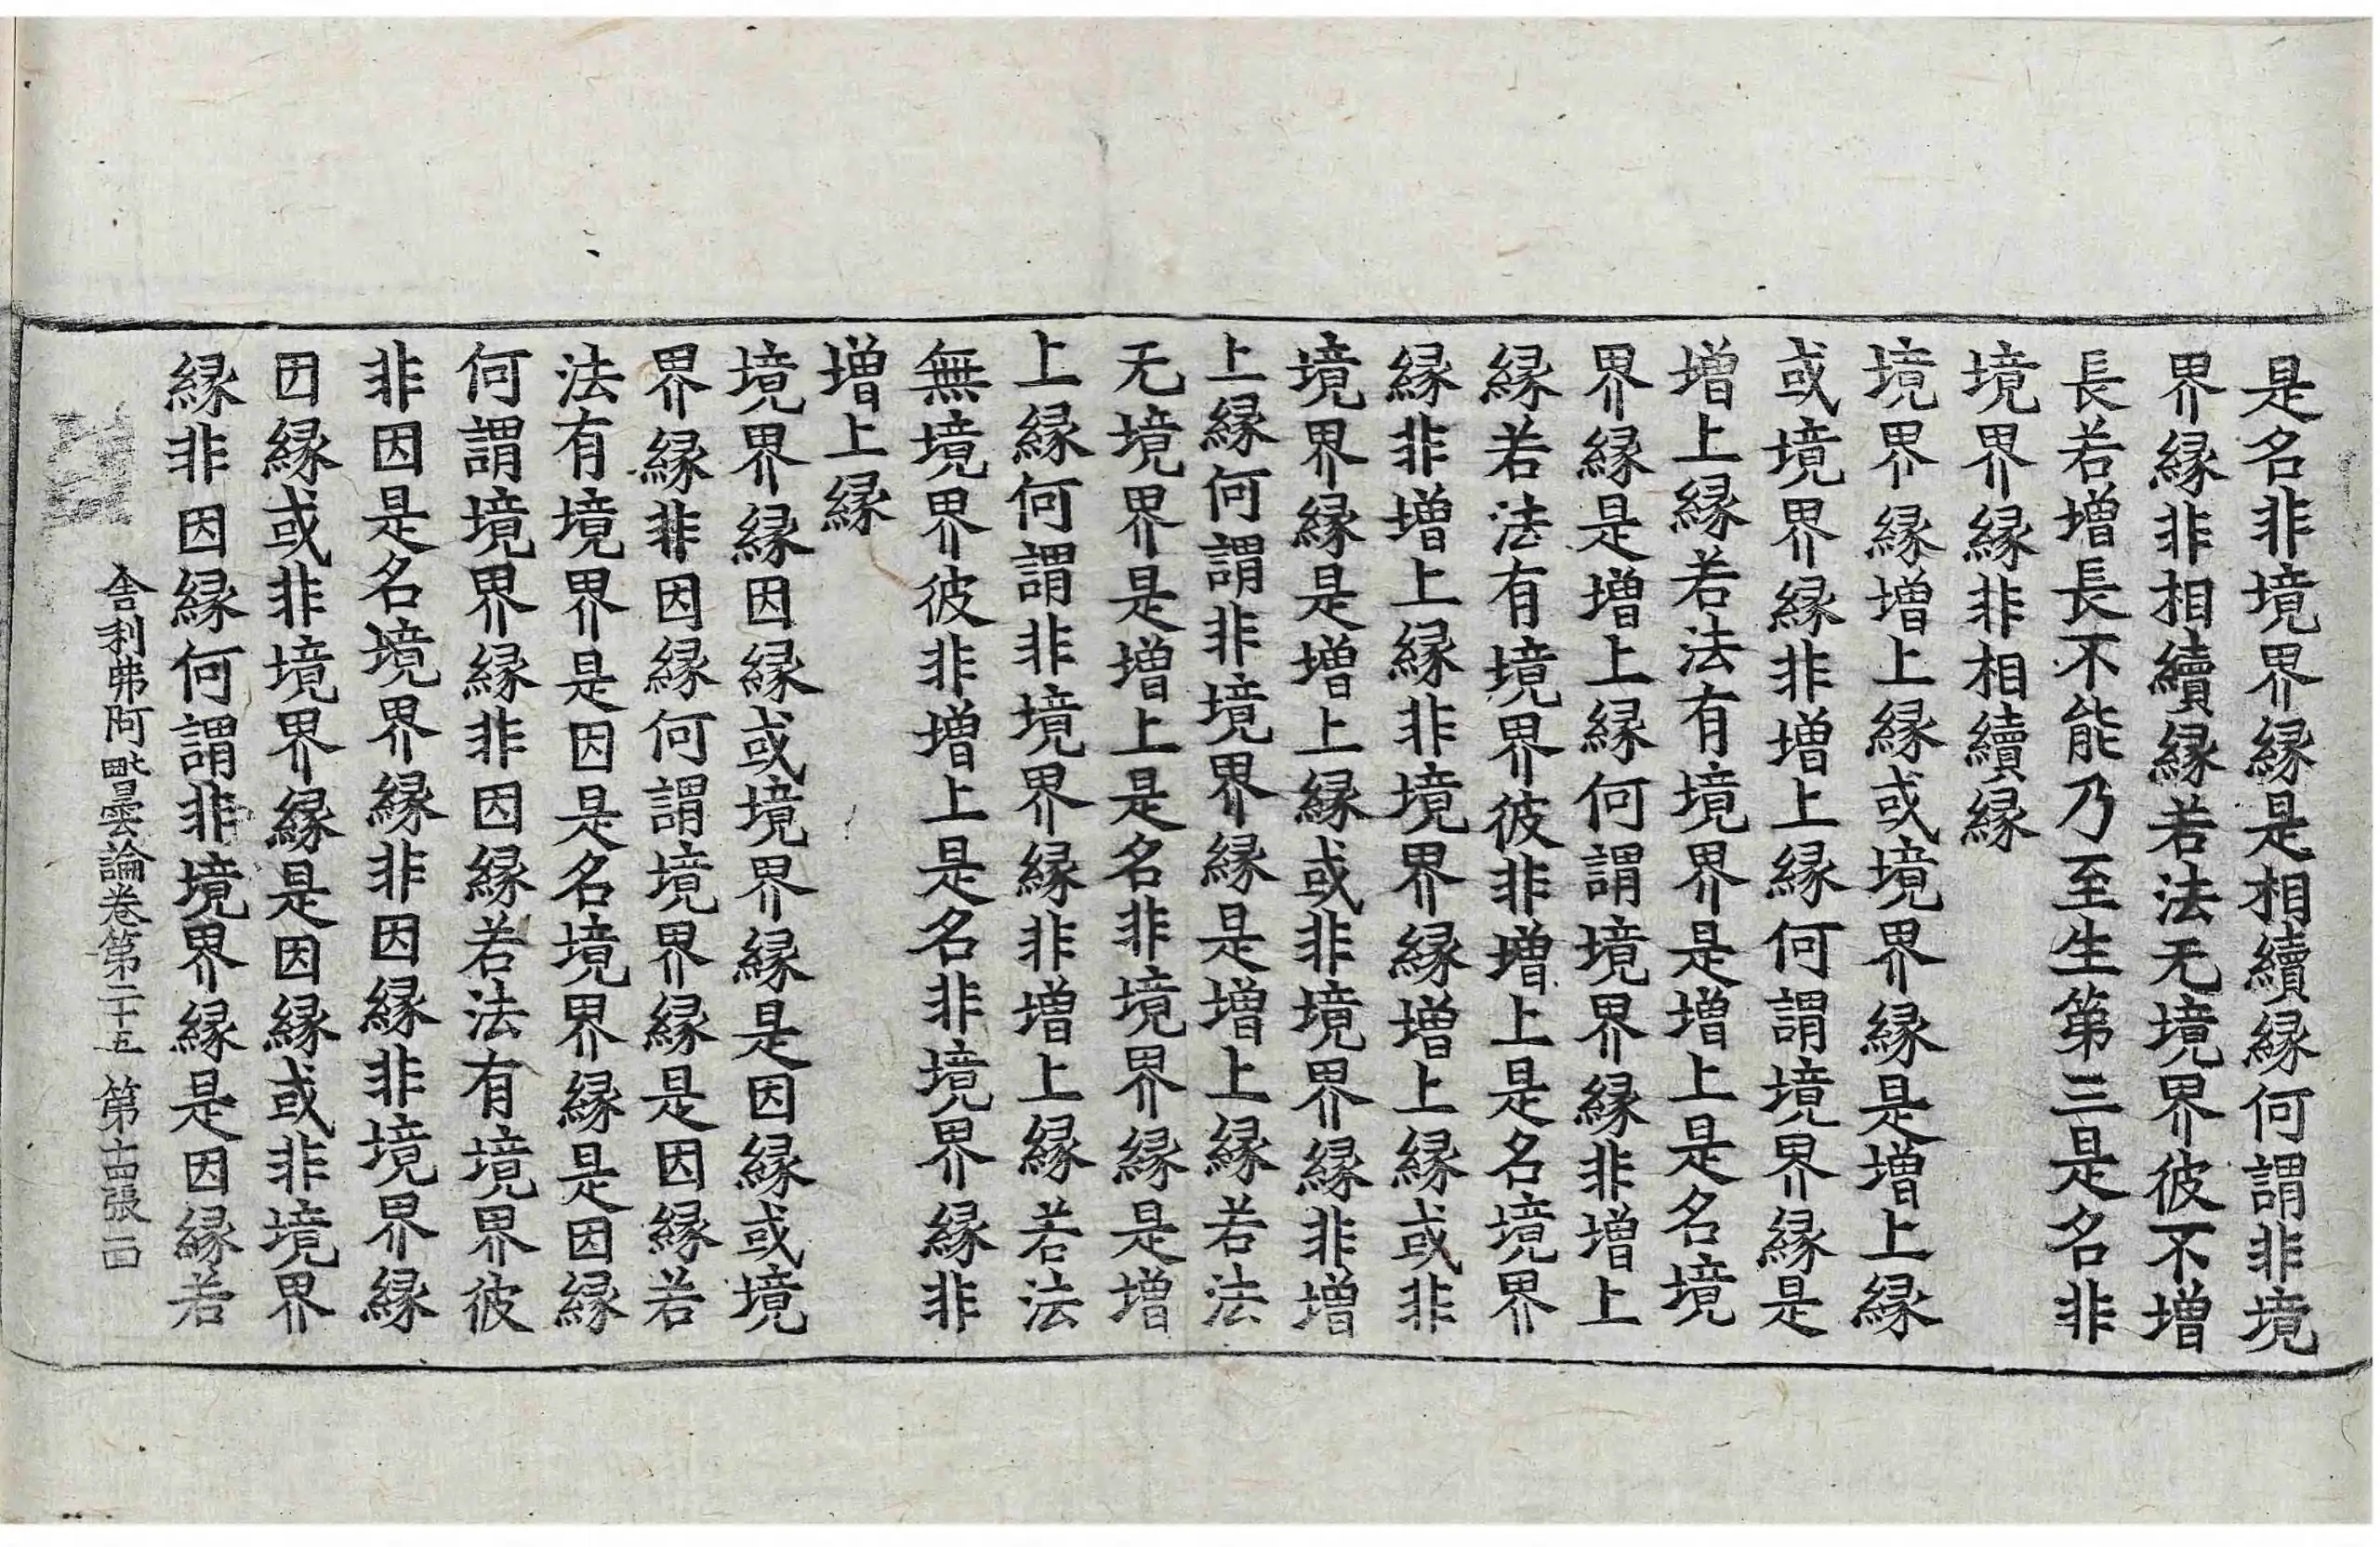 是名非境界縁是相續縁何謂非境
界縁非相續縁若法无境界彼不增
長若增長不能乃至生第三是名非
境界縁非相續縁
境界縁增上縁或境界縁是增上縁
或境界縁非增上縁何謂境界縁是
增上縁若法有境界是增上是名境
界縁是增上縁何謂境界縁非增上
縁若法有境界彼非增上是名境界
縁非增上縁非境界縁增上縁或非
境界縁是增上縁或非境界縁非增
上縁何謂非境界縁是增上縁若法
无境界是增上是名非境界縁是增
上縁何謂非境界縁非增上縁若法
無境界彼非增上是名非境界縁非
增上縁
境界縁因縁或境界縁是因縁或境
界縁非因縁何謂境界縁是因縁若
法有境界是因是名境界縁是因縁
何謂境界縁非因縁若法有境界彼
非因是名境界縁非因縁非境界縁
因縁或非境界縁是因縁或非境界
縁非因縁何謂非境界縁是因縁若
舍利弗阿毗曇論卷第二十五 第十四張